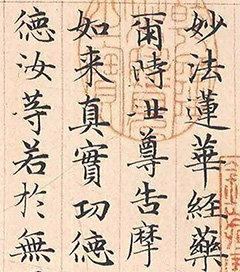 妙法蓮華経藥
爾時世尊告摩
如来真實功德
德汝等若於無